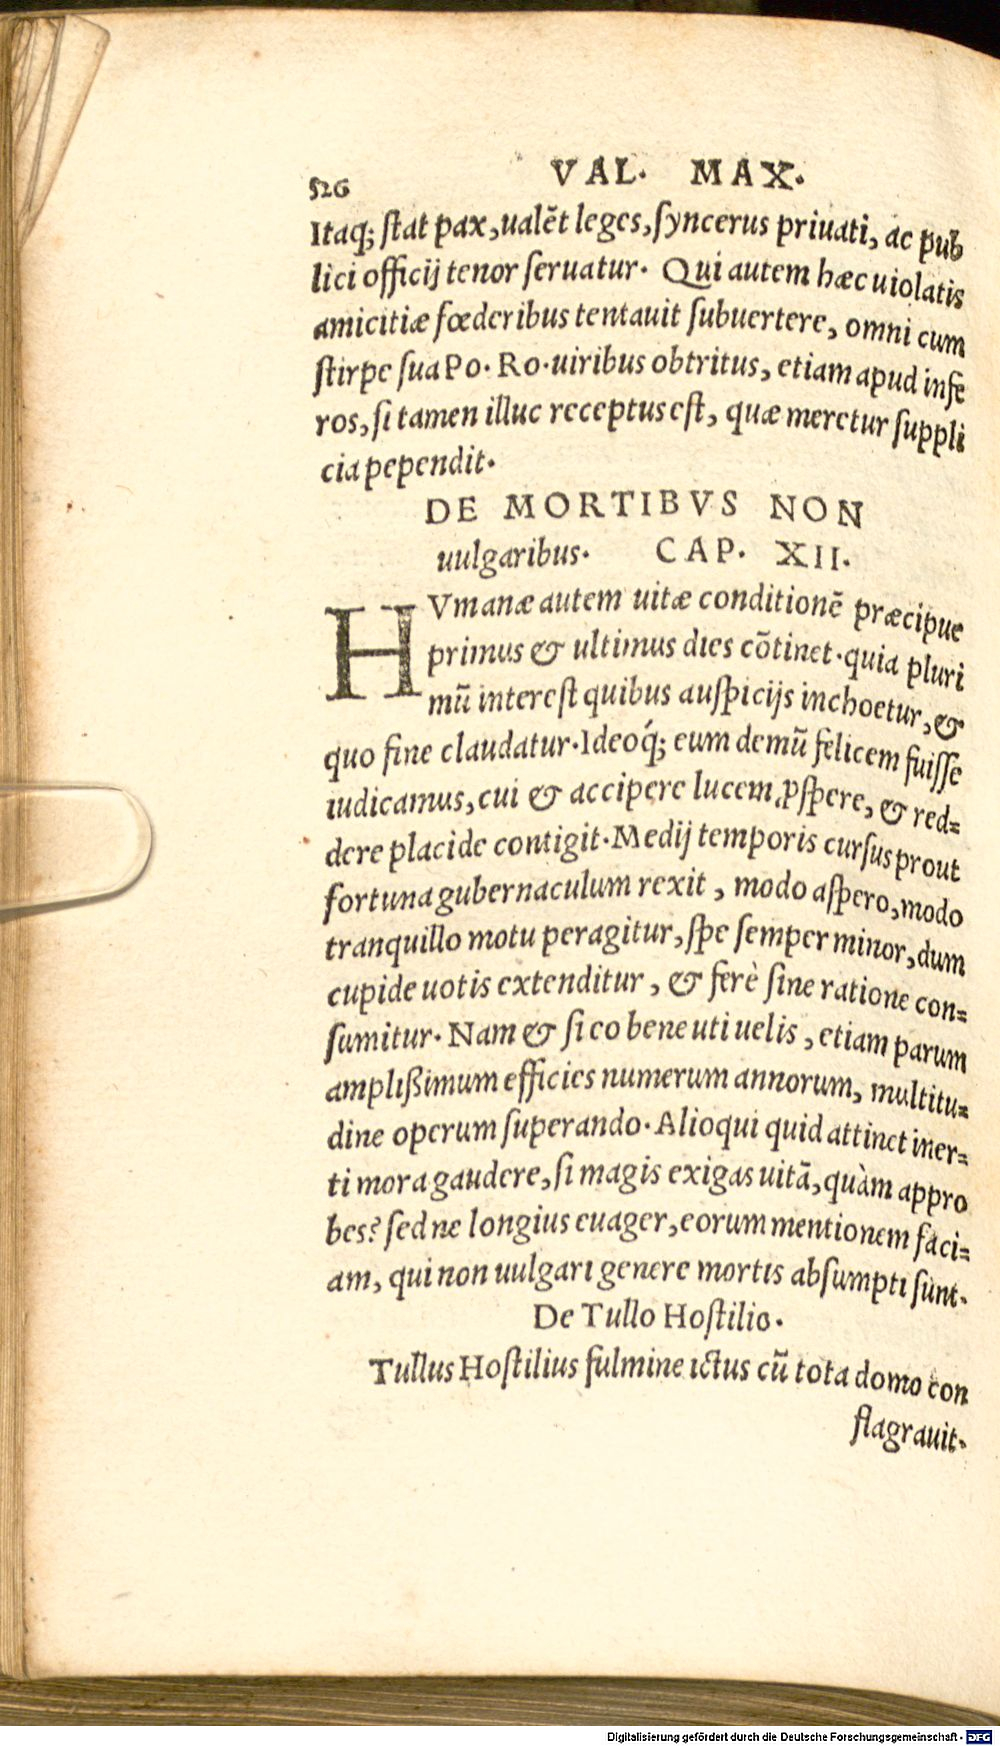 526 VAL. MAX.
Itaq; ſtat pax, ualẽt leges, ſyncerus priuati, ac pub
lici officij tenor ſeruatur. Qui autem hæc uiolatis
amicitiæ fœderibus tentauit ſubuertere, omni cum
ſtirpe ſua Po. Ro. uiribus obtritus, etiam apud infe
ros, ſi tamen illuc receptus eſt, quæ meretur ſuppli
cia pependit.
DE MORTIBVS NON
uulgaribus. CAP. XII.
HVmanæ autem uitæ conditionẽ præcipue
primus & ultimus dies cõtinet. quia pluri
mũ intereſt quibus auſpicijs inchoetur, &
quo fine claudatur. Ideoq́; eum demũ felicem fuiſſe
iudicamus, cui & accipere lucem ꝓſpere, & red=
dere placide contigit. Medij temporis curſus prout
fortuna gubernaculum rexit, modo aſpero, modo
tranquillo motu peragitur, ſpe ſemper minor, dum
cupide uotis extenditur, & ferè ſine ratione con=
ſumitur. Nam & ſi eo bene uti uelis, etiam parum
ampliſſimum efficies numerum annorum, multitu=
dine operum ſuperando. Alioqui quid attinet iner=
ti mora gaudere, ſi magis exigas uitã, quàm appro
bes? ſed ne longius euager, eorum mentionem faci=
am, qui non uulgari genere mortis abſumpti ſunt.
De Tullo Hoſtilio.
Tullus Hoſtilius fulmine ictus cũ tota domo con
flagrauit.
Digitalisierung gefördert durch die Deutsche Forschungsgemeinschaft - DFG